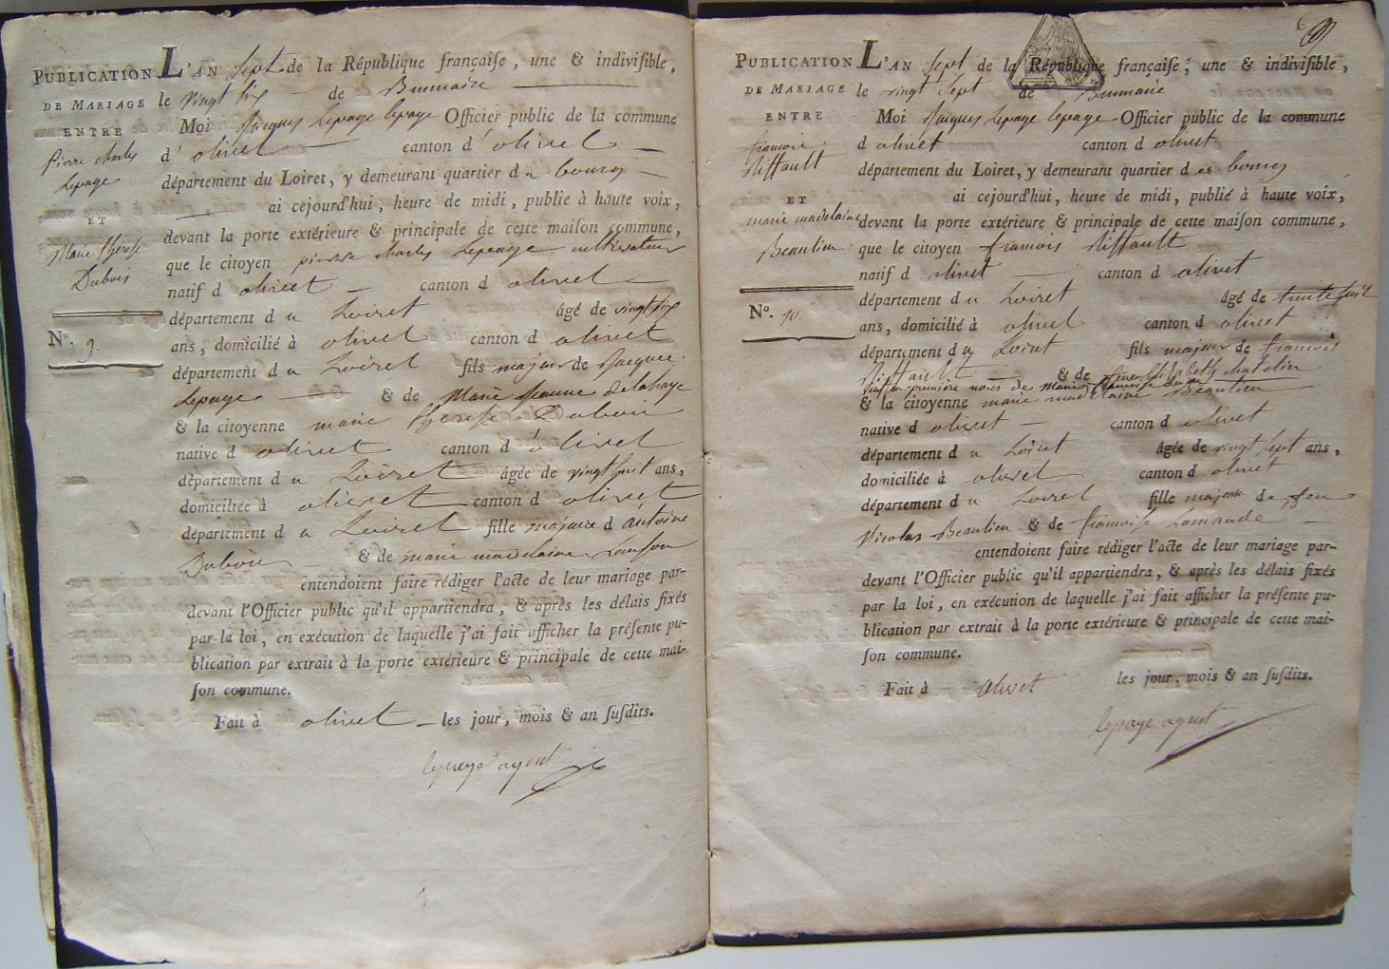 PUBLICATION
DE MARIAGE
ENTRE
pierre charles
Lepage
ET
Marie thérese
Dubois
N.o 9.
L'AN sept de la République françaiſe, une & indiviſible,
le vingt six de Brumaire
Moi Jacques Lepage lepage Officier public de la commune
d'olivet canton d'olivet
département du Loiret, y demeurant quartier du bourg
ai cejourd'hui, heure de midi, publié à haute voix,
devant la porte extérieure & principale de cette maiſon commune,
que le citoyen pierre charles Lepage cultivateur
natif d olivet canton d olivet
département du Loiret âgé de vingt six
ans, domicilié à olivet canton d olivet
département du Loiret fils majeur de Jacques
Lepage & de Marie Jeanne delahaye
& la citoyenne marie therese Dubois
native d olivet canton d'olivet
département du Loiret âgée de vingt huit ans,
domiciliée à olivet canton d olivet
département du Loiret fille majeure d antoine
Dubois & de marie madelaine
entendoient faire rédiger l'acte de leur mariage par-
devant l'Officier public qu'il appartiendra, & après les délais fixés
par la loi, en exécution de laquelle j'ai fait afficher la préſente pu-
blication par extrait à la porte extérieure & principale de cette mai-
ſon commune.
Fait à olivet les jour, mois & an ſuſdits.
lepage agent
PUBLICATION
DE MARIAGE
ENTRE
francois
Riffault
ET
marie madelaine
Beaulieu
N.o 10.
L'AN sept de la République françaiſe, une & indiviſible,
le vingt sept de Brumaire
Moi Jacques Lepage lepage Officier public de la commune
d olivet canton d olivet
département du Loiret, y demeurant quartier du bourg
ai cejourd'hui, heure de midi, publié à haute voix,
devant la porte extérieure & principale de cette maiſon commune,
que le citoyen francois Riffault
natif d olivet canton d olivet
département du Loiret âgé de trente huit
ans, domicilié à olivet canton d olivet
département du Loiret fils majeur de francois
Riffault & de
veuf en premiere noces de Marie francoise
& la citoyenne marie madelaine Beaulieu
native d olivet canton d olivet
département du Loiret âgée de vingt sept ans,
domiciliée à olivet canton d olivet
département du Loiret fille majeure de feu
Nicolas Beaulieu & de francoise Lamande
entendoient faire rédiger l'acte de leur mariage par-
devant l'Officier public qu'il appartiendra, & après les délais fixés
par la loi, en exécution de laquelle j'ai fait afficher la préſente pu-
blication par extrait à la porte extérieure & principale de cette mai-
ſon commune.
Fait à olivet les jour, mois & an ſuſdits.
lepage agent